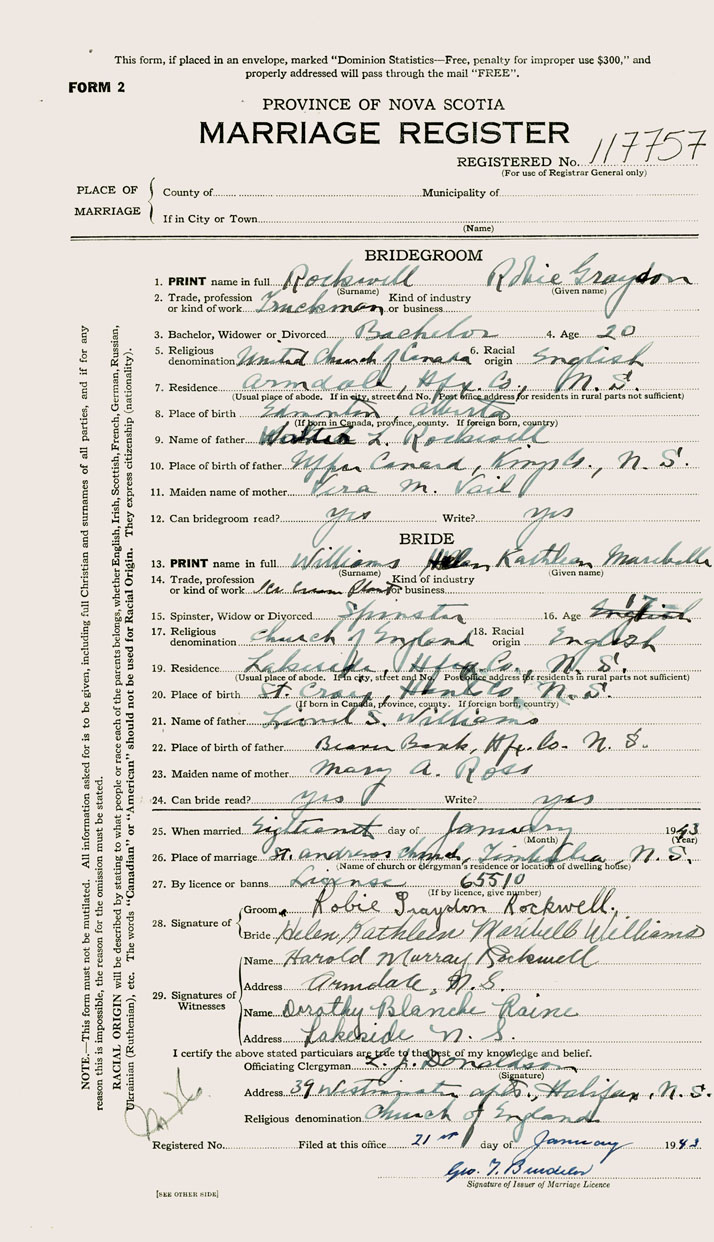 This form, if placed in an envelope, marked "Dominion Statistics—Free, penalty for improper use $300," and
properly addressed will pass through the mail "FREE".
FORM 2
PROVINCE OF NOVA SCOTIA
MARRIAGE REGISTER
REGISTERED No. 117757
(For use of Registrar General only)
PLACE OF MARRIAGE
County of Municipality of
If in City or Town
(Name)
BRIDEGROOM
1. PRINT name in full Rockwell Robie Graydon
(Surname) (Given name)
2. Trade, profession or kind of work Truckman Kind of industry or business
3. Bachelor, Widower or Divorced Bachelor 4. Age 20
5. Religious denomination United Church of Canada 6. Racial origin English
7. Residence Armdale, Hfx. Co., N. S.
(Usual place of abode. If in city, street and No. Post office address for residents in rural parts not sufficient)
8. Place of birth Edmonton, Alberta
(If born in Canada, province, county. If foreign born, country)
9. Name of father L. Rockwell
10. Place of birth of father Upper Canard, Kings Co., N. S.
11. Maiden name of mother Vera M. Vail
12. Can bridegroom read? yes Write? yes
BRIDE
13. PRINT name in full Williams Helen Kathleen Maribelle
(Surname) (Given name)
14. Trade, profession or kind of work Ice Cream Plant Kind of industry or business
15. Spinster, Widow or Divorced Spinster 16. Age 17
17. Religious denomination Church of England 18. Racial origin English
19. Residence Lakeside, Hfx. Co., N. S.
(Usual place of abode. If in city, street and No. Post office address for residents in rural parts not sufficient)
20. Place of birth St. Croix, Hants Co., N. S.
(If born in Canada, province, county. If foreign born, country)
21. Name of father Lionel S. Williams
22. Place of birth of father Beaver Bank, Hfx. Co. N. S.
23. Maiden name of mother Mary A. Ross
24. Can bride read? yes Write? yes
25. When married Eighteenth day of January 1943
(Month) (Year)
26. Place of marriage St. Andrews Church, Timberlea, N. S.
(Name of church or clergyman's residence or location of dwelling house)
27. By licence or banns License 65510
(If by licence, give number)
28. Signature of
Groom Robie Graydon Rockwell.
Bride Helen Kathleen Maribell Williams
29. Signatures of Witnesses
Name Harold Murray Rockwell
Address Armdale, N.S.
Name Dorothy Blanche Raine
Address Lakeside N. S.
I certify the above stated particulars are true to the best of my knowledge and belief.
Officiating Clergyman L. J. Donaldson
(Signature)
Address 39 Westminster apts., Halifax, N. S.
Religious denomination Church of England
Registered No. Filed at this office 21st day of January 1943
Geo. T.
Signature of Issuer of Marriage Licence
[SEE OTHER SIDE]
NOTE.—This form must not be mutilated. All information asked for is to be given, including full Christian and surnames of all parties, and if for any
reason this is impossible, the reason for the omission must be stated.
RACIAL ORIGIN will be described by stating to what people or race each of the parents belongs, whether English, Irish, Scottish, French, German, Russian,
Ukrainian (Ruthenian), etc. The words "Canadian" or "American" should not be used for Racial Origin. They express citizenship (nationality).